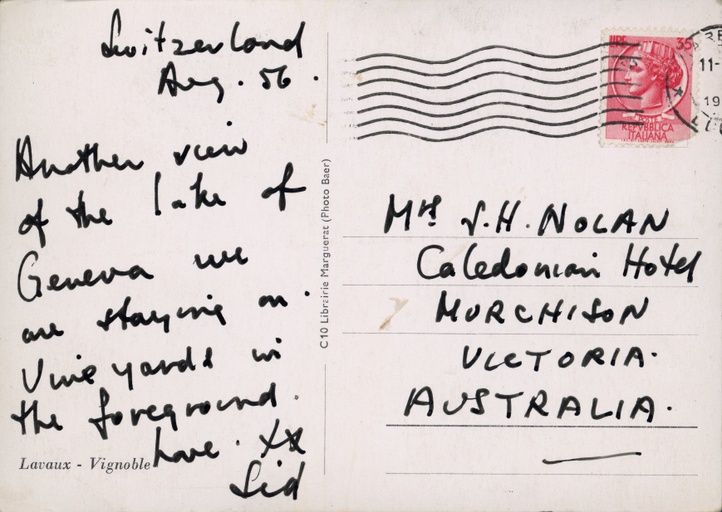 Switzerland
Aug. 56.
Another view
of the lake of
Geneva we
are staying on.
Vineyards in
the foreground.
Love. xx
Sid
Lavaux - Vignoble
C10 Librairie Marguerat (Photo Baer)
LIRE 35
POSTE
REPVBBLICA
ITALIANA
11-
19
Mrs S.H. NOLAN
Caledonian Hotel
MURCHISON
VICTORIA.
AUSTRALIA.